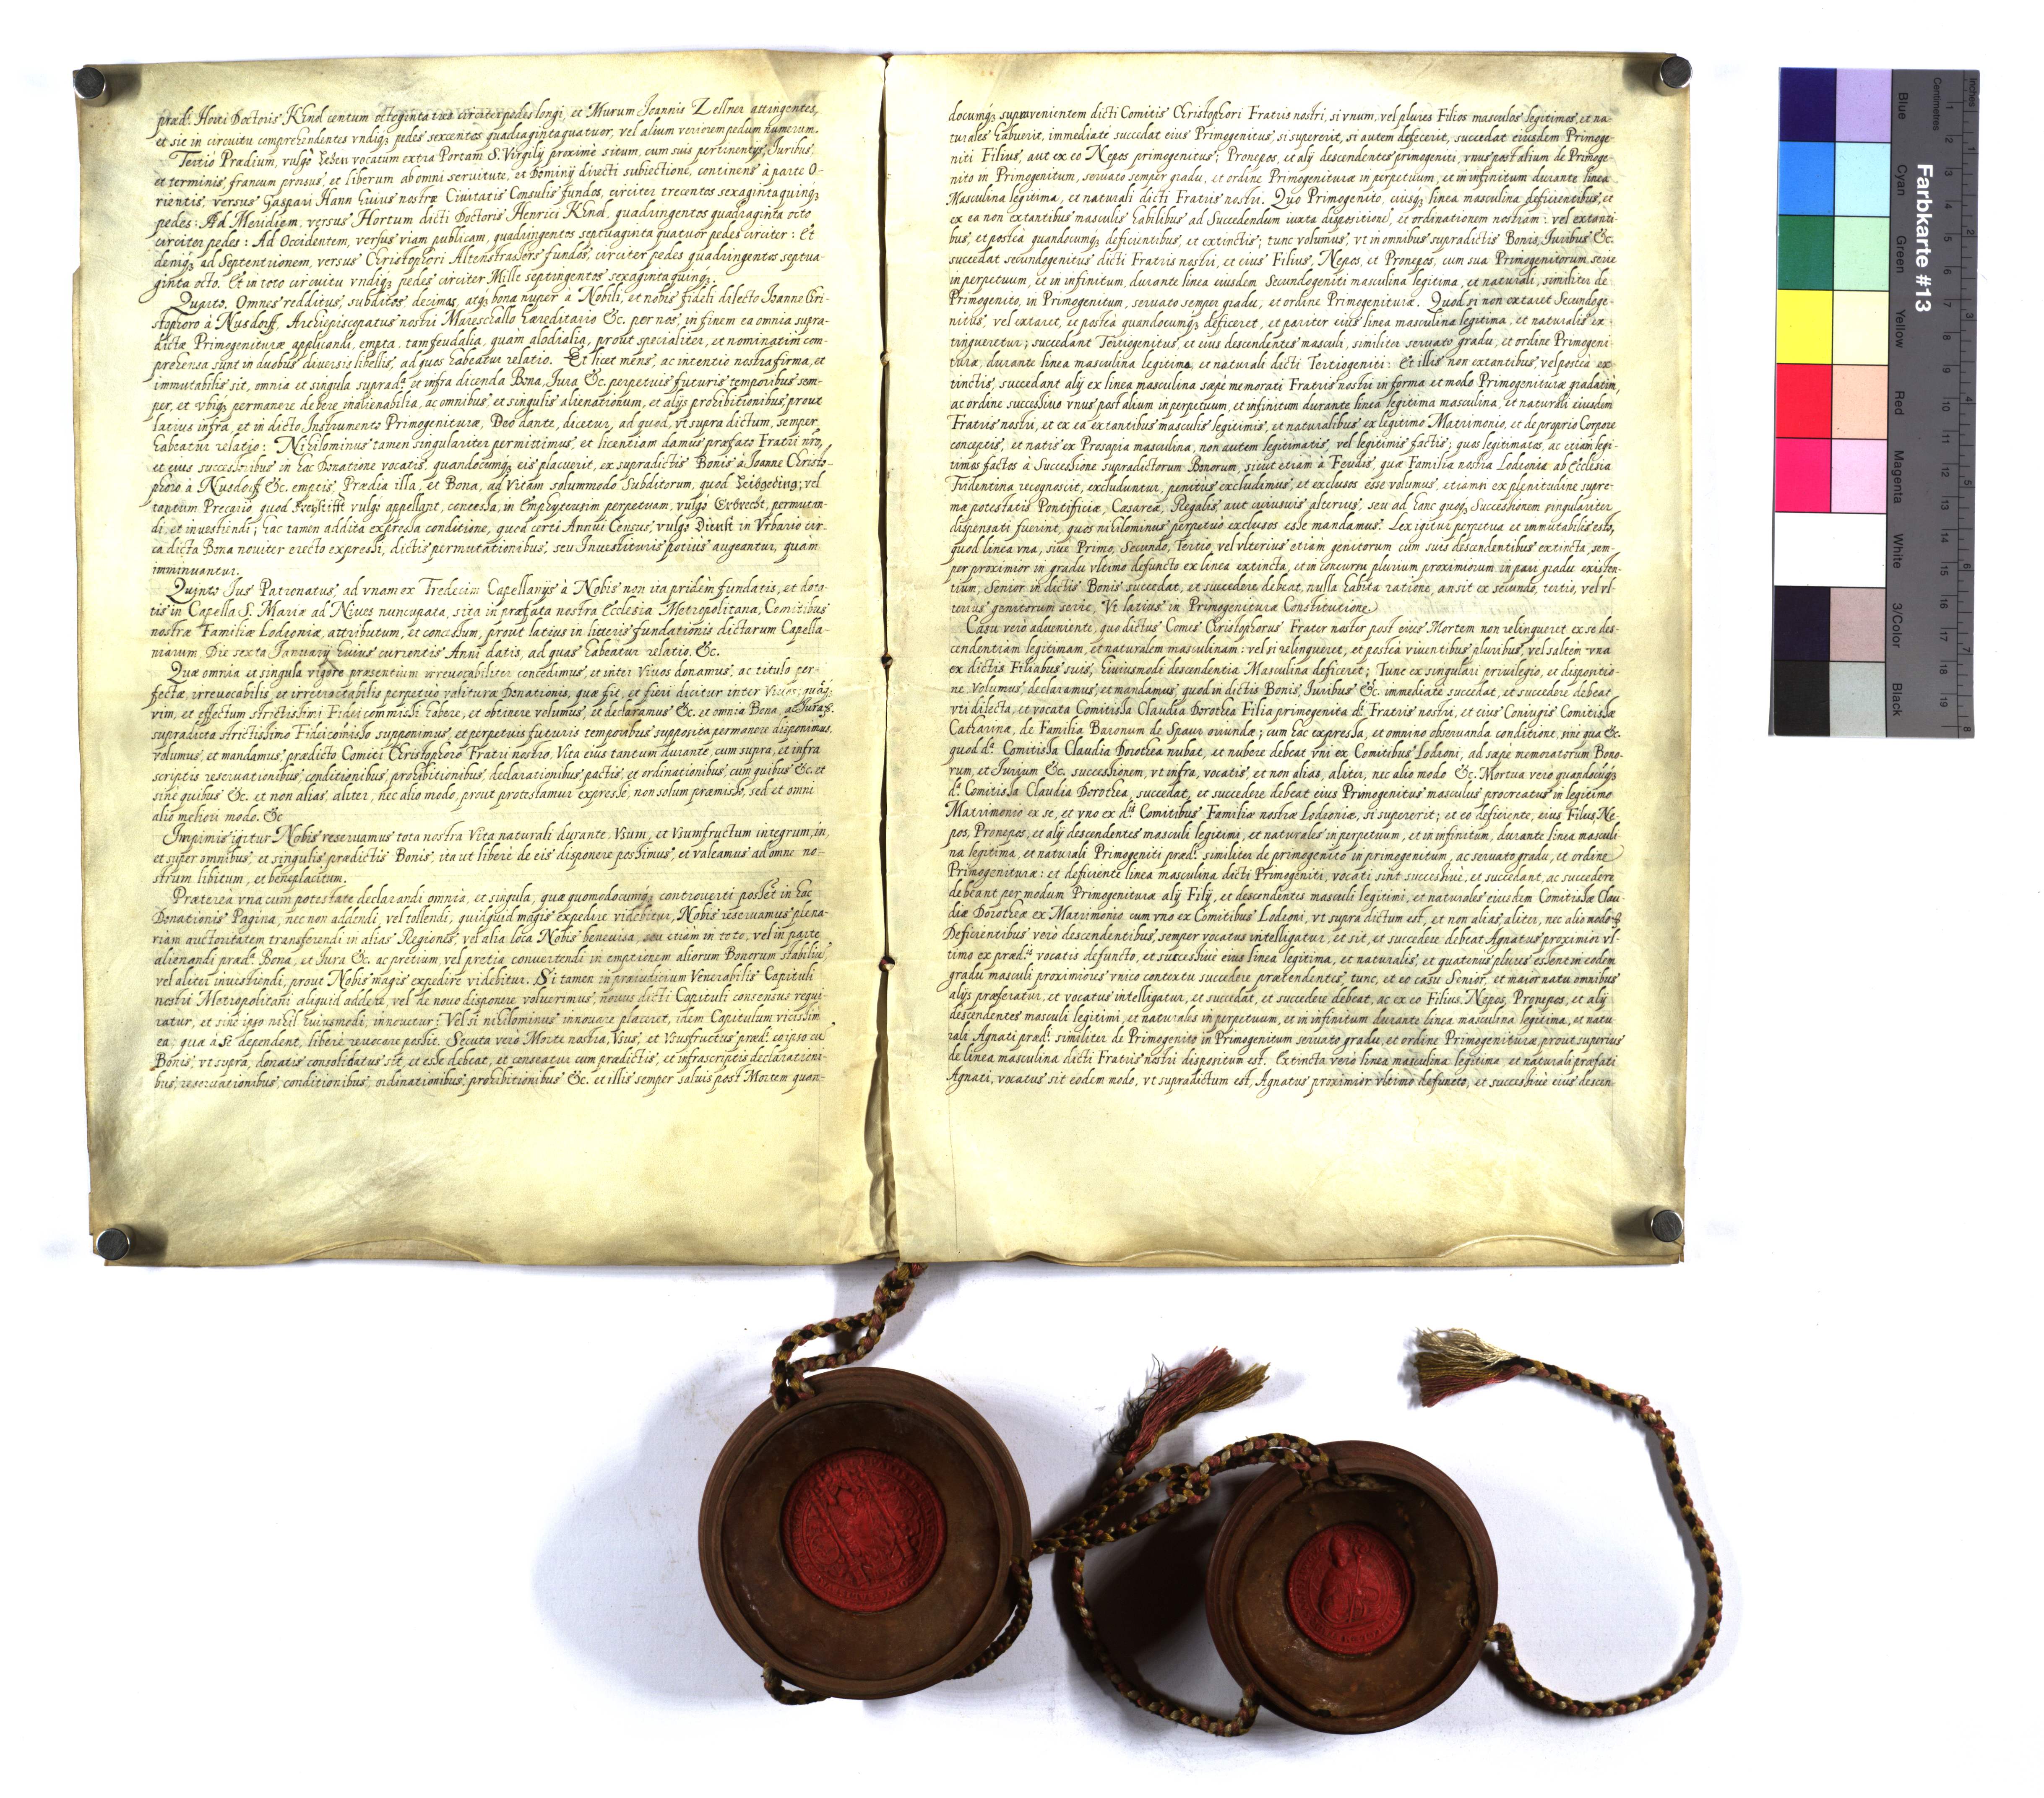 præd: Horti Doctoris Khnol centum octoginta tres circiter pedes longi, et Murum Joannis Zellner attingentes,
et sic in circuitu comprehendentes vndiq3 pedes sexcentos quadraginta quatuor, vel alium veriorem pedum numerum.
Tertiò Prædium, vulgò Lehen vocatum extra Portam S. Virgilij proximè situm, cum suis pertinentijs, Juribus,
et terminis, francum prorsus, et liberum ab omni seruitute, et Dominij directi subiectione, continens à parte O-
rientis, versus Gaspari Hann huius nostræ Ciuitatis Consulis fundos, circiter trecentos sexaginta quinq3
pedes: Ad Meridiem, versus Hortum dicti Doctoris Henrici Khnol, quadringentos quadraginta octo
circiter pedes: Ad Occidentem, versus viam publicam, quadringentos septuaginta quatuor pedes circiter: Et
deniq3 ad Septentrionem, versus Christophori Altenstrassers fundos, circiter pedes quadringentos septua-
ginta octo. Et in toto circuitu vndiq3 pedes circiter Mille septingentos sexaginta quinq3.
Quartò. Omnes redditus, subditos, decimas, atq3 bona nuper à Nobili, et nobis fideli dilecto Joanne Chri-
stophoro à Nusdorff, Archiepiscopatus nostri Mareschallo hæreditario &c. per nos, in finem ea omnia supra-
dictæ Primogenituræ applicandi, empta, tam feudalia, quam alodialia, prout specialiter, et nominatim com-
prehensa sunt in duobus diuersis libellis, ad quos habeatur relatio. Et licet mens, ac intentio nostra firma, et
immutabilis sit, omnia et singula suprad: et infra dicenda Bona, Jura &c. perpetuis futuris temporibus sem-
per, et vbiq3 permanere debere inalienabilia, ac omnibus, et singulis alienationum, et alijs prohibitionibus, prout
latius infra, et in dicto Instrumento Primogenituræ, Deo dante, dicetur, ad quod, vt supra dictum, semper
habeatur relatio: Nihilominus tamen singulariter permittimus, et licentiam damus præfato Fratri nro,
et eius successoribus in hac Donatione vocatis, quandocumq3 eis placuerit, ex supradictis Bonis à Joanne Christo-
phoro à Nusdorff &c. emptis, Prædia illa, et Bona, ad Vitam solummodo Subditorum, quod Leibgeding; vel
tantum Precario, quod Freystifft vulgò appellant, concessa, in Emphyteusim perpetuam, vulgò Erbrecht, permutan-
di, et inuestiendi; hac tamen addita expressa conditione, quod certi Annui Census, vulgò Dienst in Vrbario cir-
ca dicta Bona nouiter erecto expressi, dictis permutationibus, seu Inuestituris potius augeantur, quàm
imminuantur.
Quintò Jus Patronatus, ad vnam ex Tredecim Capellanijs à Nobis non ita pridem fundatis, et dota-
tis in Capella S. Mariæ ad Niues nuncupata, sita in præfata nostra Ecclesia Metropolitana, Comitibus
nostræ Familiæ Lodroniæ, attributum, et concessum, prout latius in litteris fundationis dictarum Capella-
niarum, Die sexta Januarij huius currentis Anni datis, ad quas habeatur relatio. &c.
Quæ omnia et singula vigore præsentium irreuocabiliter concedimus, et inter Viuos donamus, ac titulo per-
fectæ, irreuocabilis, et irretractabilis perpetuò valituræ Donationis, quæ fit, et fieri dicitur inter Viuos, quaq3
vim, et effectum strictissimi Fideicommissi habere, et obtinere volumus, et declaramus &c. et omnia Bona, ac Jura &c.
supradicta strictissimo Fideicomisso supponimus, et perpetuis futuris temporibus supposita permanere disponimus,
volumus, et mandamus, prædicto Comiti Christophoro Fratri nostro, Vita eius tantum durante, cum supra, et infra
scriptis reseruationibus, conditionibus, prohibitionibus, declarationibus, pactis, et ordinationibus, cum quibus &c. et
sinè quibus &c. et non alias, aliter, nec alio modo, prout protestamur expressè, non solum præmisso, sed et omni
alio meliori modo. &c
Imprimis igitur Nobis reseruamus tota nostra Vita naturali durante, Vsum, et Vsumfructum integrum, in,
et super omnibus, et singulis prædictis Bonis, ita ut liberè de eis disponere possimus, et valeamus ad omne no-
strum libitum, et beneplacitum.
Præterea vna cum potestate declarandi omnia, et singula, quæ quomodocumq3 controuerti posset in hac
Donationis Pagina, nec non addendi, vel tollendi, quidquid magis expedire videbitur, Nobis reseruamus plena-
riam auctoritatem transferendi in alias Regiones, vel alia loca Nobis beneuisa, seu etiam in toto, vel in parte
alienandi præd: Bona, et Jura &c. ac pretium, vel pretia conuertendi in emptionem aliorum Bonorum stabiliu,
vel aliter inuestiendi, prout Nobis magis expedire videbitur. Si tamen in præiudicium Venerabilis Capituli
nostri Metropolitani aliquid addere, vel de nouo disponere voluerimus, nouus dicti Capituli consensus requi-
ratur, et sinè ipso nihil huiusmodi innouetur: Vel si nihilominus innouare placeret, idem Capitulum vicissim
ea, quæ à se dependent, liberè reuocare possit. Secuta verò Morte nostra, Vsus, et Vsusfructus præd: eo ipso cu
Bonis, vt supra, donatis consolidatus sit, et esse debeat, et censeatur cum prædictis, et infrascriptis declarationi-
bus, reseruationibus, conditionibus, ordinationibus, prohibitionibus &c. et illis semper saluis post Mortem quan-
documq3 superuenientem dicti Comitis Christophori Fratris nostri, si vnum, vel plures Filios masculos legitimos, et na-
turales habuerit, immediatè succedat eius Primogenitus, si supererit, si autem defecerit, succedat eiusdem Primoge-
niti Filius, aut ex eo Nepos primogenitus; Pronepos, et alij descendentes primogeniti, vnus post alium de Primoge-
nito in Primogenitum, seruato semper gradu, et ordine Primogenituræ in perpetuum, et in infinitum durante linea
Masculina legitima, et naturali dicti Fratris nostri. Quo Primogenito, eiusq3 linea masculina deficientibus, et
ex ea non extantibus masculis habilibus ad Succedendum iuxta dispositione, et ordinationem nostram: vel extanti-
bus, et posteà quandocumq3 deficientibus, et extinctis; tunc volumus, vt in omnibus supradictis Bonis, Juribus &c.
succedat secundogenitus dicti Fratris nostri, et eius Filius, Nepos, et Pronepos, cum sua Primogenitorum serie
in perpetuum, et in infinitum, durante linea eiusdem Secundogeniti masculina legitima, et naturali, similiter de
Primogenito, in Primogenitum, seruato semper gradu, et ordine Primogenituræ. Quod si non extaret Secundoge-
nitus, vel extaret, et posteà quandocumq3 deficeret, et pariter eius linea masculina legitima, et naturalis ex-
tingueretur; succedant Tertiogenitus, et eius descendentes masculi, similiter seruato gradu, et ordine Primogeni-
turæ, durante linea masculina legitima, et naturali dicti Tertiogeniti: Et illis non extantibus, vel posteà ex-
tinctis, succedant alij ex linea masculina sæpè memorati Fratris nostri in forma et modo Primogenituræ gradatim,
ac ordine successiuo vnus post alium in perpetuum, et infinitum durante linea legitima masculina, et naturali eiusdem
Fratris nostri, et ex ea extantibus masculis legitimis, et naturalibus ex legitimo Matrimonio, et de proprio Corpore
conceptis, et natis ex Prosapia masculina, non autem legitimatis, vel legitimis factis; quos legitimatos, ac etiam legi-
timos factos à Successione supradictorum Bonorum, sicut etiam à Feudis, quæ Familia nostra Lodronia ab Ecclesia
Tridentina recognoscit, excluduntur, penitùs excludimus, et exclusos esse volumus, etiamsi ex plenitudine supre-
mæ potestatis Pontificiæ, Cæsareæ, Regalis, aut cuiusuis alterius, seu ad hanc quoq3 Successionem singulariter
dispensati fuerint, quos nihilominus perpetuò exclusos esse mandamus. Lex igitur perpetua et immutabilis esto,
quod linea vna, siue Primo, Secundo, Tertio, vel vlterius etiam genitorum cum suis descendentibus extincta, sem-
per proximior in gradu vltimo defuncto ex linea extincta, et in concursu plurium proximiorum in pari gradu existen-
tium, Senior in dictis Bonis succedat, et succedere debeat, nulla habita ratione, an sit ex secundo, tertio, vel vl-
terius genitorum serie, Vt latius in Primogenituræ Constitutione.
Casu verò adueniente, quo dictus Comes Christophorus Frater noster post eius Mortem non relinqueret ex se des-
cendentiam legitimam, et naturalem masculinam: vel si relinqueret, et posteà viuentibus pluribus, vel saltem vna
ex dictis Filiabus suis, huiusmodi descendentia Masculina deficeret; Tunc ex singulari priuilegio, et dispositio-
ne Volumus, declaramus, et mandamus, quod in dictis Bonis, Juribus &c. immediatè succedat, et succedere debeat,
vti dilecta, et vocata Comitissa Claudia Dorothea Filia primogenita d: Fratris nostri, et eius Coniugis Comitissæ
Catharinæ, de Familia Baronum de Spaur oriundæ; cum hac expressa, et omnino obseruanda conditione, sinè qua &c.
quod d: Comitissa Claudia Dorothea nubat, et nubere debeat vni ex Comitibus Lodroni, ad sæpè memoratorum Bono-
rum, et Jurium &c. successionem, vt infra, vocatis, et non alias, aliter, nec alio modo &c. Mortua verò quandocuq3
d: Comitissa Claudia Dorothea, succedat, et succedere debeat eius Primogenitus masculus procreatus in legitimo
Matrimonio ex se, et vno ex d: Comitibus Familiæ nostræ Lodroniæ, si supererit; et eo deficiente, eius Filius, Ne-
pos, Pronepos, et alij descendentes masculi legitimi, et naturales in perpetuum, et in infinitum, durante linea masculi-
na legitima, et naturali Primogeniti præd: similiter de primogenito in primogenitum, ac seruato gradu, et ordine
Primogenituræ: et deficiente linea masculina dicti Primogeniti, vocati sint successiuè, et succedant, ac succedere
debeant per modum Primogenituræ alij Filij, et descendentes masculi legitimi, et naturales eiusdem Comitissæ Clau-
diæ Dorotheæ ex Matrimonio cum vno ex Comitibus Lodroni, vt supra dictum est, et non alias, aliter, nec alio modo &c.
Deficientibus verò descendentibus, semper vocatus intelligatur, et sit, et succedere debeat Agnatus proximior vl-
timo ex præd: vocatis defuncto, et successiuè eius linea legitima, et naturalis, et quatenus plures essent in eodem
gradu masculi proximiores vnico contextu succedere prætendentes, tunc, et eo casu Senior, et maior natu omnibus
alijs præferatur, et vocatus intelligatur, et succedat, et succedere debeat, ac ex eo Filius, Nepos, Pronepos, et alij
descendentes masculi legitimi, et naturales in perpetuum, et in infinitum durante linea masculina legitima, et natu-
rali Agnati præd: similiter de Primogenito in Primogenitum seruato gradu, et ordine Primogenituræ, prout superius
de linea masculina dicti Fratris nostri dispositum est. Extincta verò linea masculina legitima, et naturali præfati
Agnati, vocatus sit eodem modo, vt supradictum est, Agnatus proximior vltimo defuncto, et successiuè eius descen-
Farbkarte #13
Blue Cyan Green Yellow Red Magenta White 3/Color Black
Centimetres 1 2 3 4 5 6 7 8 9 10 11 12 13 14 15 16 17 18 19
Inches 1 2 3 4 5 6 7 8